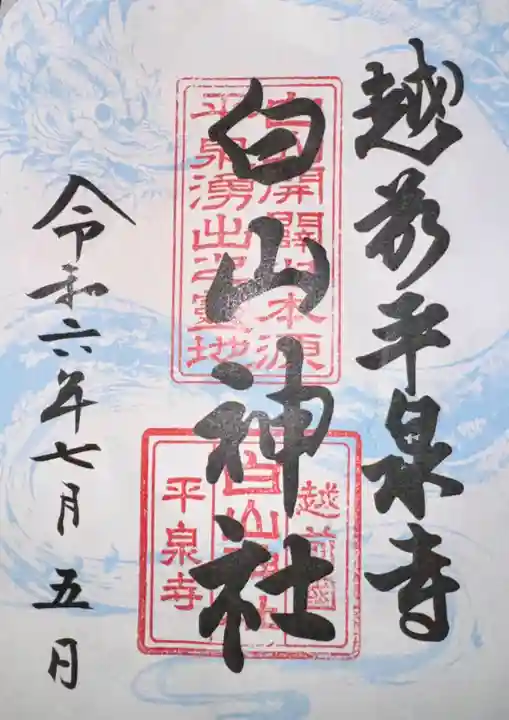 越前平泉寺
白山神社
令和六年七月五日
平泉湧出之靈地
越前國
白山神社
平泉寺